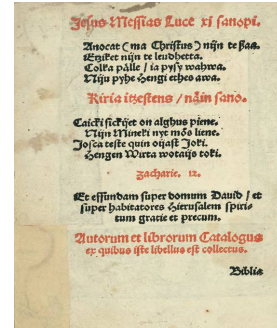 Jesus Messias Luce xi sanopi.
Anocat (ma Christus) nijn te ßaa.
Etziket nijn te leudhetta.
Colka pälle / ia pysy wahwa.
Niju pyhe Hengi ethes awa.
Kiria itzestens / näin sano.
Caicki sickijet on alghus piene.
Nijn Mineki nyt mös liene.
Josca teste quin oijast Joki.
Hengen Wirta wotaijs toki.
Zacharie. 12.
Et effundam super domum Dauid / et
super habitatores Hierusalem spiri-
tum gratie et precum.
Autorum et librorum Catalogus
ex quibus iste libellus est collectus.
Biblia